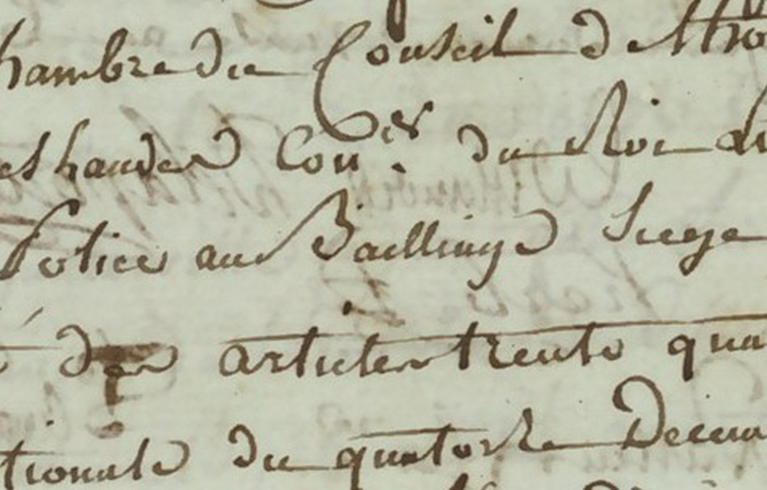 hambre du Conseil de
deshandes Con.er du Roi
Police au Bailliage Siege
des articles trente qua
tionale du quatorze Decem